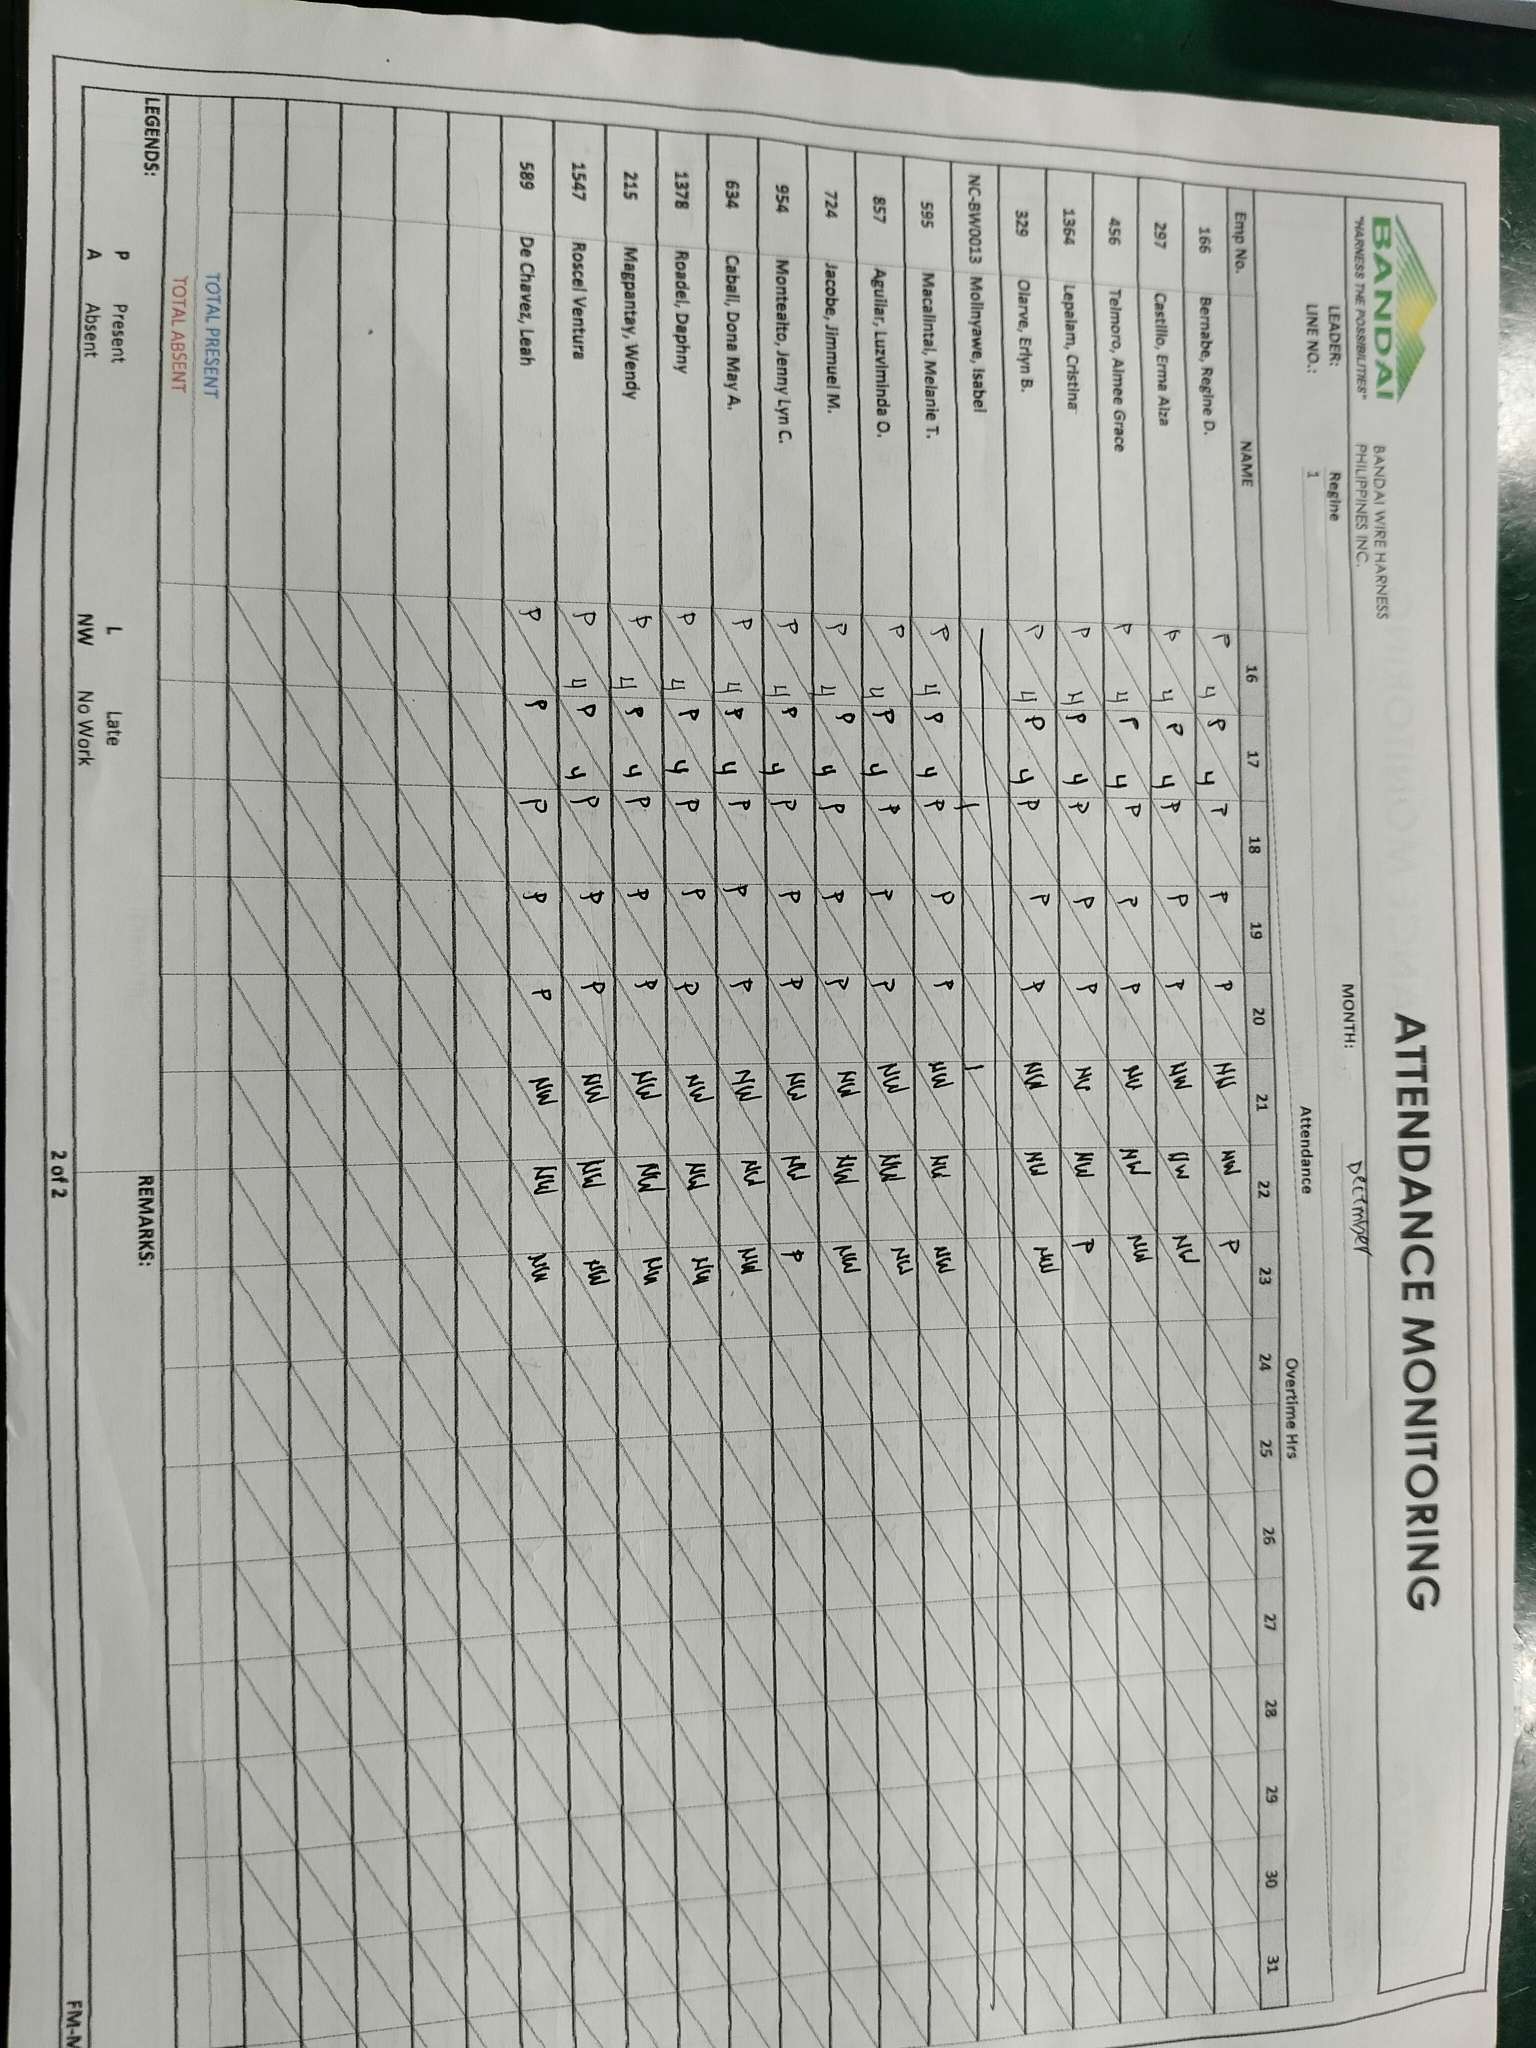 BANDAI
"HARNESS THE POSSIBILITIES"
BANDAI WIRE HARNESS
PHILIPPINES INC.
ATTENDANCE MONITORING
LEADER: Regine MONTH: December
LINE NO.: 1
Attendance Overtime Hrs
Emp No. NAME 16 17 18 19 20 21 22 23 24 25 26 27 28 29 30 31
166 Bernabe, Regine D. P 4 P 4 P P P NW NW P
297 Castillo, Erma Aiza P 4 P 4 P P P NW NW NW
456 Telmoro, Aimee Grace P 4 P 4 P P P NW NW NW
1364 Lepalam, Cristina P 4 P 4 P P P NW NW P
329 Olarve, Erlyn B. P 4 P 4 P P P NW NW NW
NC-BW0013 Molinyawe, Isabel
595 Macalintal, Melanie T. P 4 P 4 P P P NW NW NW
857 Aguilar, Luzviminda O. P 4 P 4 P P P NW NW NW
724 Jacobe, Jimmuel M. P 4 P 4 P P P NW NW NW
954 Montealto, Jenny Lyn C. P 4 P 4 P P P NW NW P
634 Caball, Dona May A. P 4 P 4 P P P NW NW NW
1378 Roadel, Daphny P 4 P 4 P P P NW NW NW
215 Magpantay, Wendy P 4 P 4 P P P NW NW NW
1547 Roscel Ventura P 4 P 4 P P P NW NW NW
589 De Chavez, Leah P P P P P NW NW NW
TOTAL PRESENT
TOTAL ABSENT
LEGENDS: REMARKS:
P Present L Late
A Absent NW No Work
2 of 2